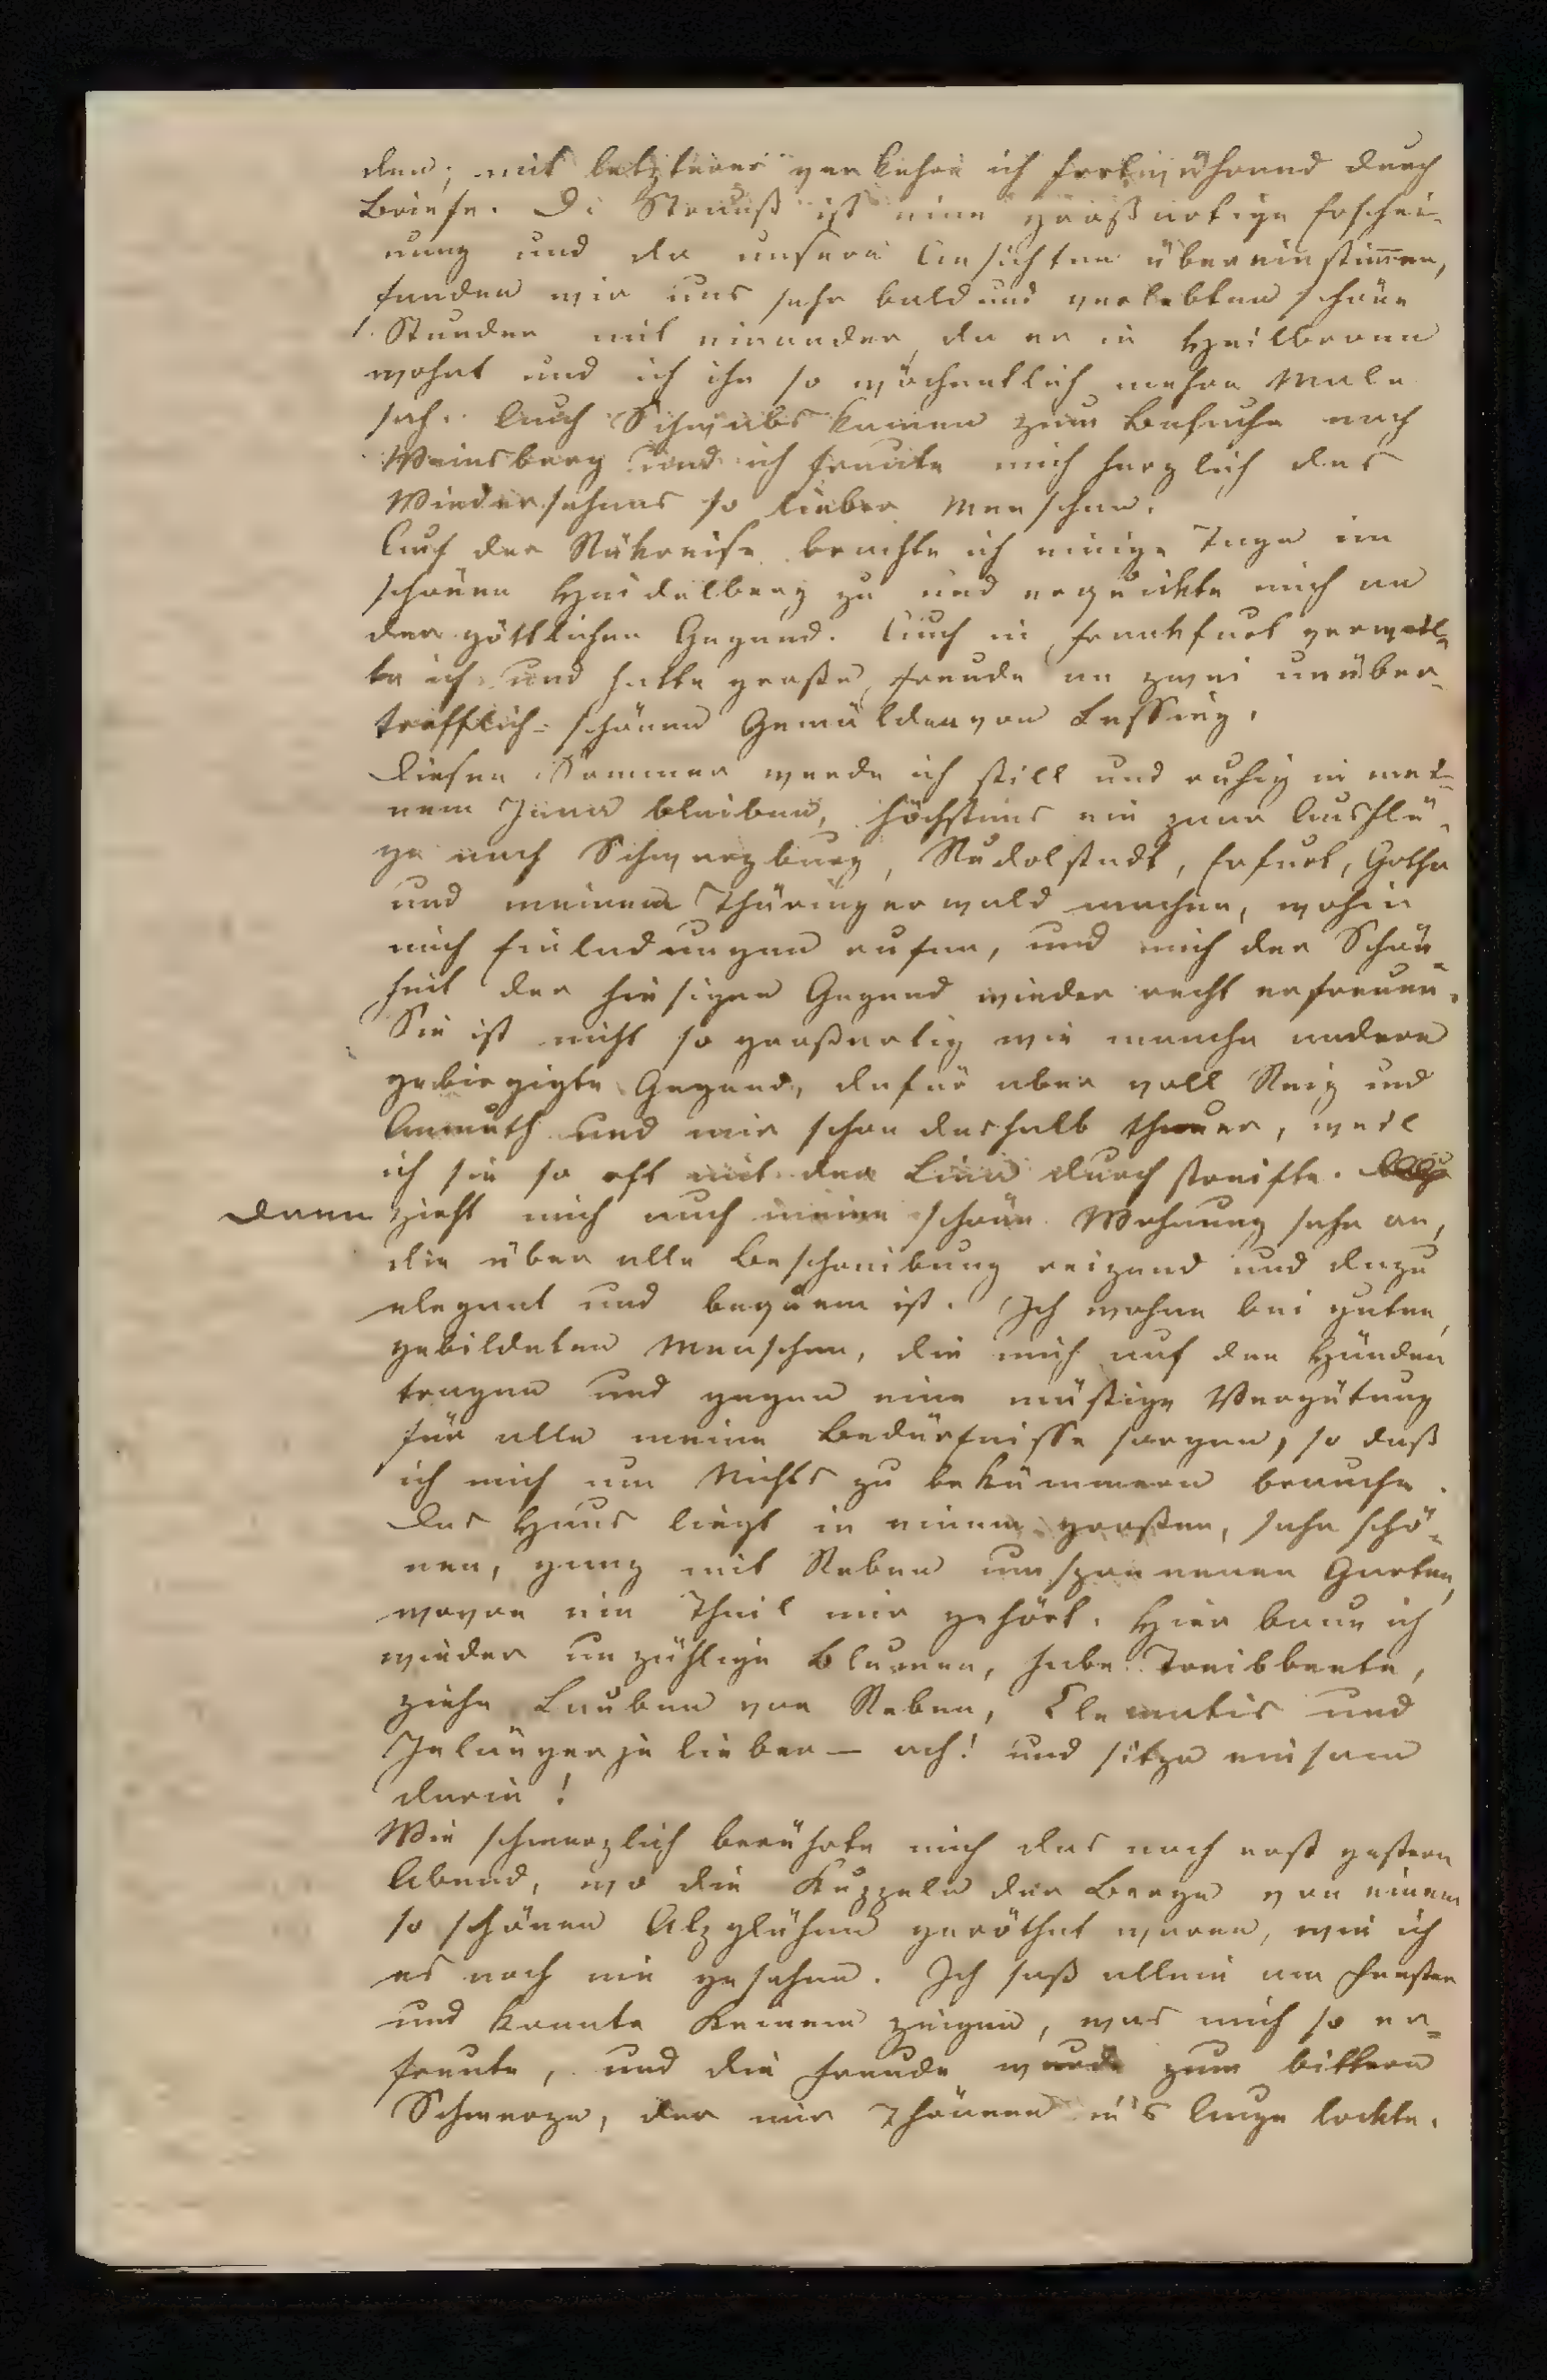 den; mit letzterer verkehre ich fortwährend durch
Briefe. D: Strauß ist eine großartige Erschei-
nung und da unsere Ansichten übereinstim̅en,
fanden wir uns sehr bald und verlebten schöne
Stunden mit einander, da er in Heilbronn
wohnt und ich ihn so wöchentlich mehre Male
sah. Auch Schwabs kamen zum Besuche nach
Weinsberg und ich freute mich herzlich des
Wiedersehens so lieber Menschen.
Auf der Rükreise brachte ich einige Tage im
schönen Heidelberg zu und erquikte mich an
der göttlichen Gegend. Auch in Frankfurt verweil-
te ich und hatte große Freude an zwei unüber-
trefflich-schönen Gemälden von Lessing.
Diesen Sommer werde ich still und ruhig in mei-
nem Jena bleiben, höchstens ein paar Ausflü-
ge nach Schwarzburg, Rudolstadt, Erfurt, Gotha
und meinem Thüringerwald machen, wohin
mich Einladungen rufen, und mich der Schön-
heit der hiesigen Gegend wieder recht erfreuen.
Sie ist nicht so großartig wie manche andere
gebirgigte Gegend, dafür aber voll Reiz und
Anmuth und mir schon deshalb theuer, weil
ich sie so oft mit der Lina durchstreifte.
Dann zieht mich auch meine schöne Wohnung sehr an,
die über alle Beschreibung reizend und dazu
elegant und bequem ist. Ich wohne bei guten,
gebildeten Menschen, die mich auf den Händen
tragen und gegen eine mäßige Vergütung
für alle meine Bedürfnisse sorgen, so daß
ich mich um Nichts zu bekümmern brauche.
Das Haus liegt in einem großen, sehr schö-
nen, ganz mit Reben umsponnenen Garten,
wovon ein Theil mir gehört. Hier baue ich
wieder unzählige Blumen, habe Treibbeete,
ziehe Lauben von Reben, Clematis und
Jelängerjelieber — ach! und sitze einsam
darin!
Wie schmerzlich berührte mich das noch erst gestern
Abend, wo die Kuppeln der Berge von einem
so schönen Alpglühen geröthet waren, wie ich
es noch nie gesehen. Ich saß allein am Fenster
und konnte Keinem zeigen, was mich so er-
freute, und die Freude wurde zum bittern
Schmerze, der mir Thränen in's Auge lockte.